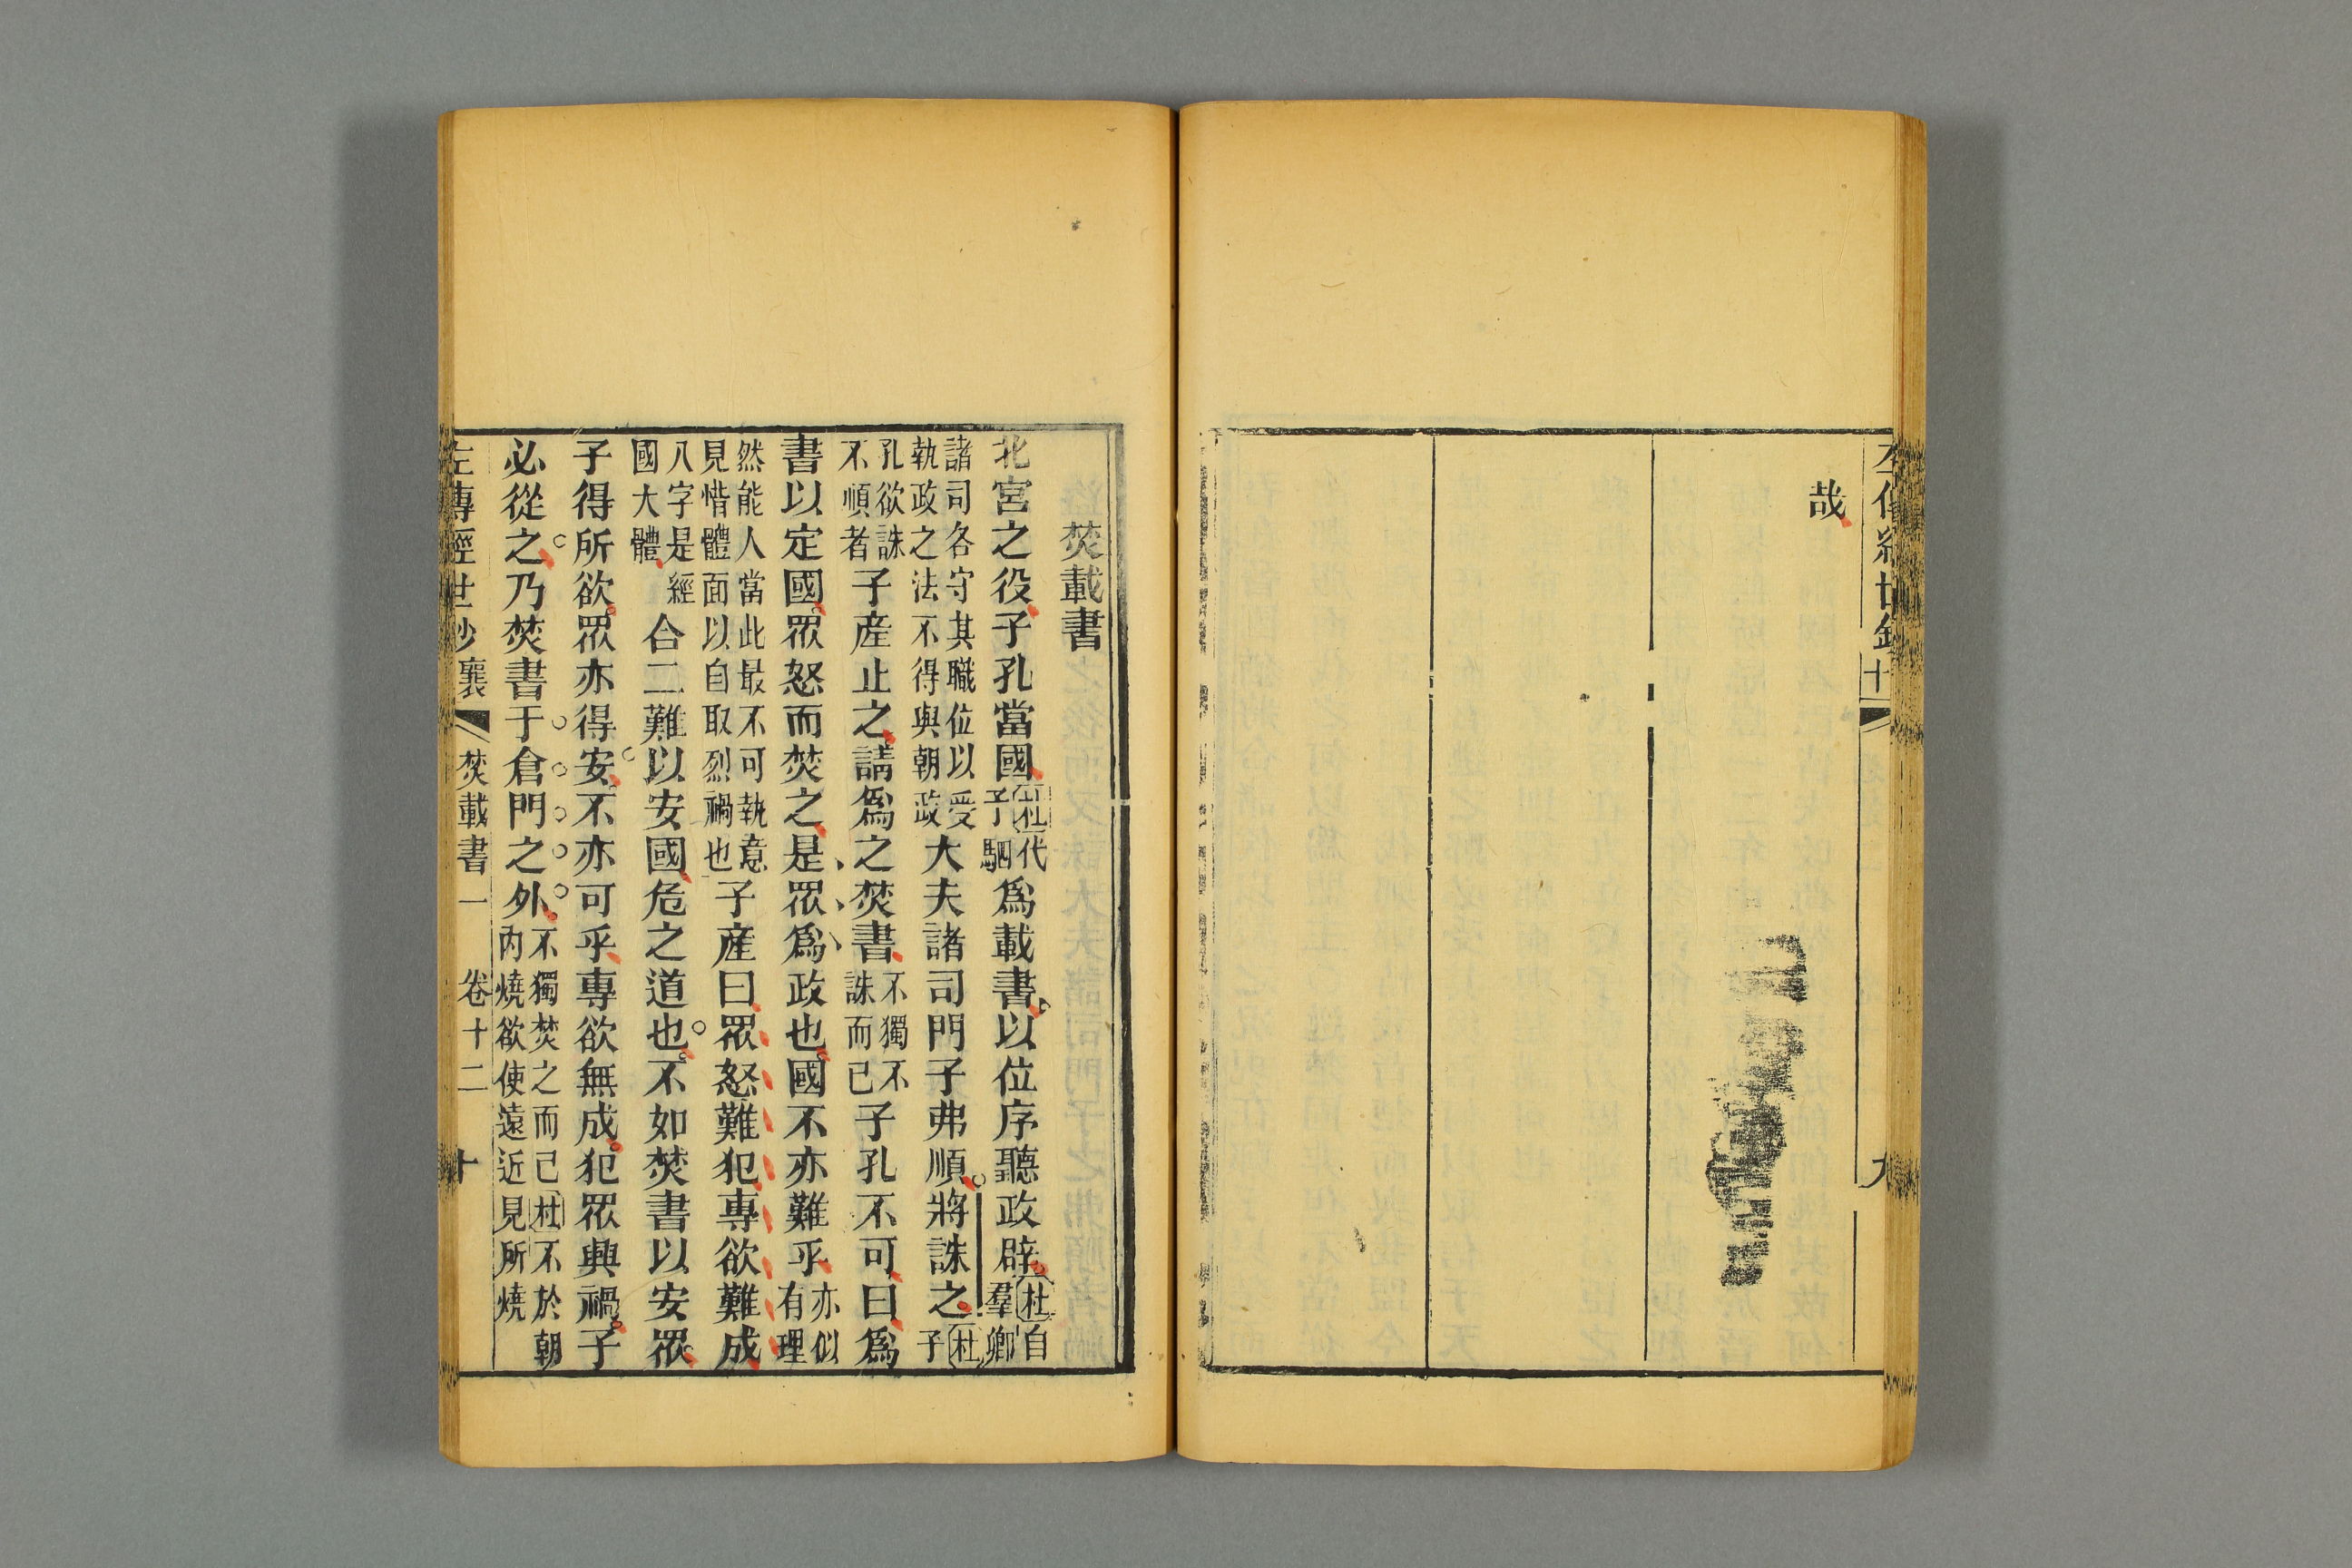 哉
焚載書
北宮之役子孔當國杜代子駟爲載書以位序聽政辟杜自羣卿
諸司各守其職位以受執政之法不得與朝政大夫諸司門子弗順將誅之杜子
孔欲誅不順者子產止之請爲之焚書不獨不誅而已子孔不可曰爲
書以定國眾怒而焚之是眾爲政也國不亦難乎亦似有理
然能人當此最不可執意見惜體面以自取烈禍也子產曰眾怒難犯專欲難成
八字是經國大體合二難以安國危之道也不如焚書以安眾
子得所欲眾亦得安不亦可乎專欲無成犯眾興禍子
必從之乃焚書于倉門之外不獨焚之而已杜不於朝內燒欲使遠近見所燒
左傳經世鈔 襄 焚載書一 卷十二 十